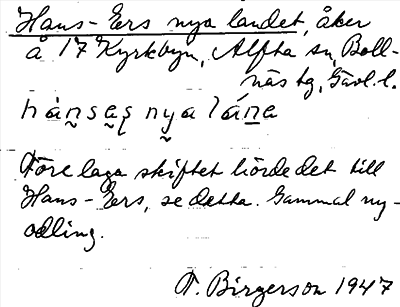 Hans-Ers nya landet, åker
å 17 Kyrkbyn, Alfta sn, Boll-
näs tg, Gävl. l.
hànsas nya lána
Före laga skiftet hörde det till
Hans-Ers, se detta. Gammal ny-
odling.
T. Birgerson 1947